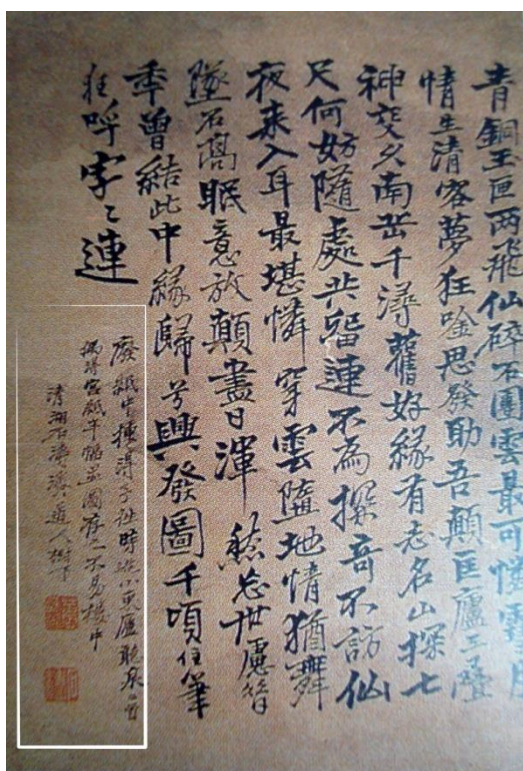 青銅玉匣两飛仙碎石團雲最可憐雲月
情生清客夢狂吟思發助吾顛匡廬三疊
神交久南岳千潯舊好緣有志名山探七
尺何妨隨處共留連不為探奇不訪仙
夜來入耳最堪憐穿雲墮地情猶舞
墜石高眠意放顛盡日渾然忘世慮昔
年曾結此中緣歸兮興發圖千頃任筆
狂呼字〻連
廢紙中揀得予往時遊小東廬聽泉之
偶得宮紙半幅並圖存之不易樓中
清湘石濤濟道人樹下